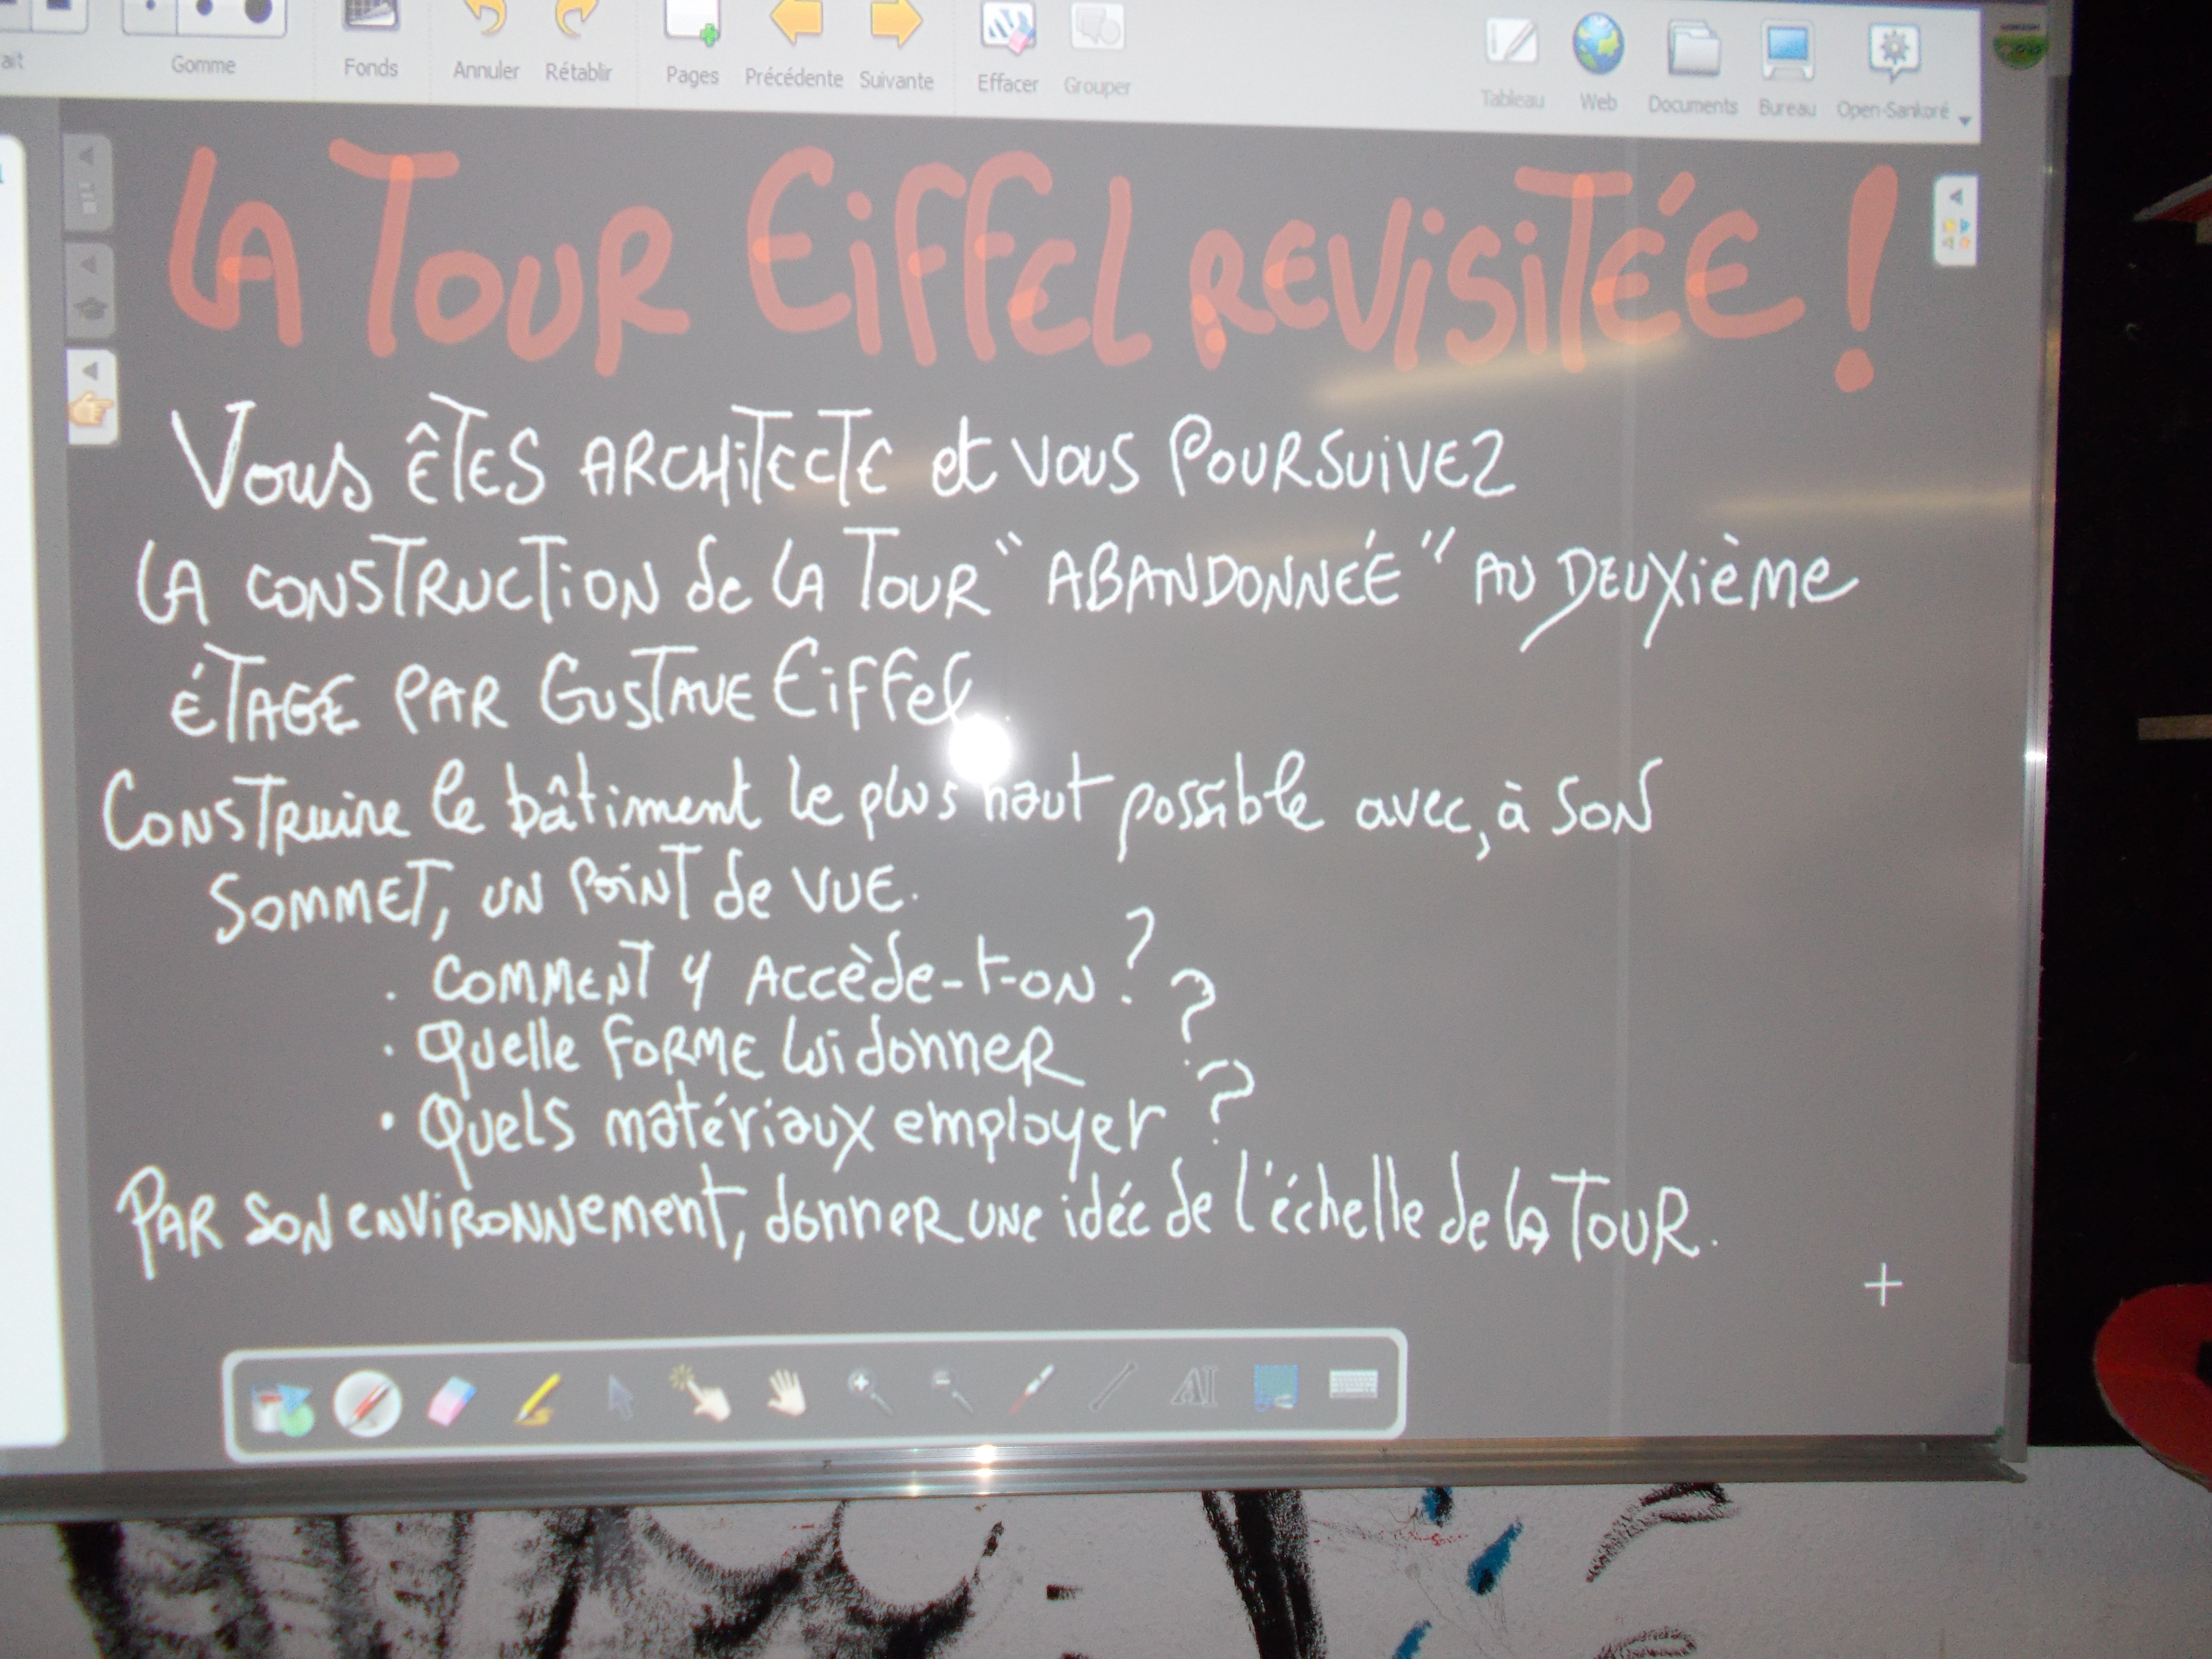 ait
Gomme
Fonds
Annuler
Rétablir
Pages
Précédente
Suivante
Effacer
Grouper
Tableau
Web
Documents
Bureau
Open-Sankoré
LA TOUR EiffEL REVISITÉE !
Vous êTES ARCHITECTE et VOUS POURSUIVEZ
LA CONSTRUCTION de LA TOUR "ABANDONNÉE" AU DEUXième
ÉTAGE PAR GUSTAVE EiFFel
CONSTRuire le bâtiment le plus haut possible avec, à SON
SOMMET, UN POINT de VUE.
. COMMENT Y Accède-t-ON ?
. Quelle FORME lui donnER ?
• Quels matériaux employer ?
PAR SON ENVIRONNement, donnER UNE idée de l'échelle de la TOUR.
AI